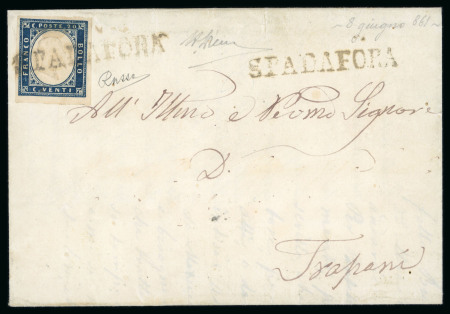 ~ 8 giugno 861 ~
C. POSTE 20
FRANCO
BOLLO
C. VENTI
SPADAFORA
SPADAFORA
All' Illmo e Revmo Signore
D.
Trapani